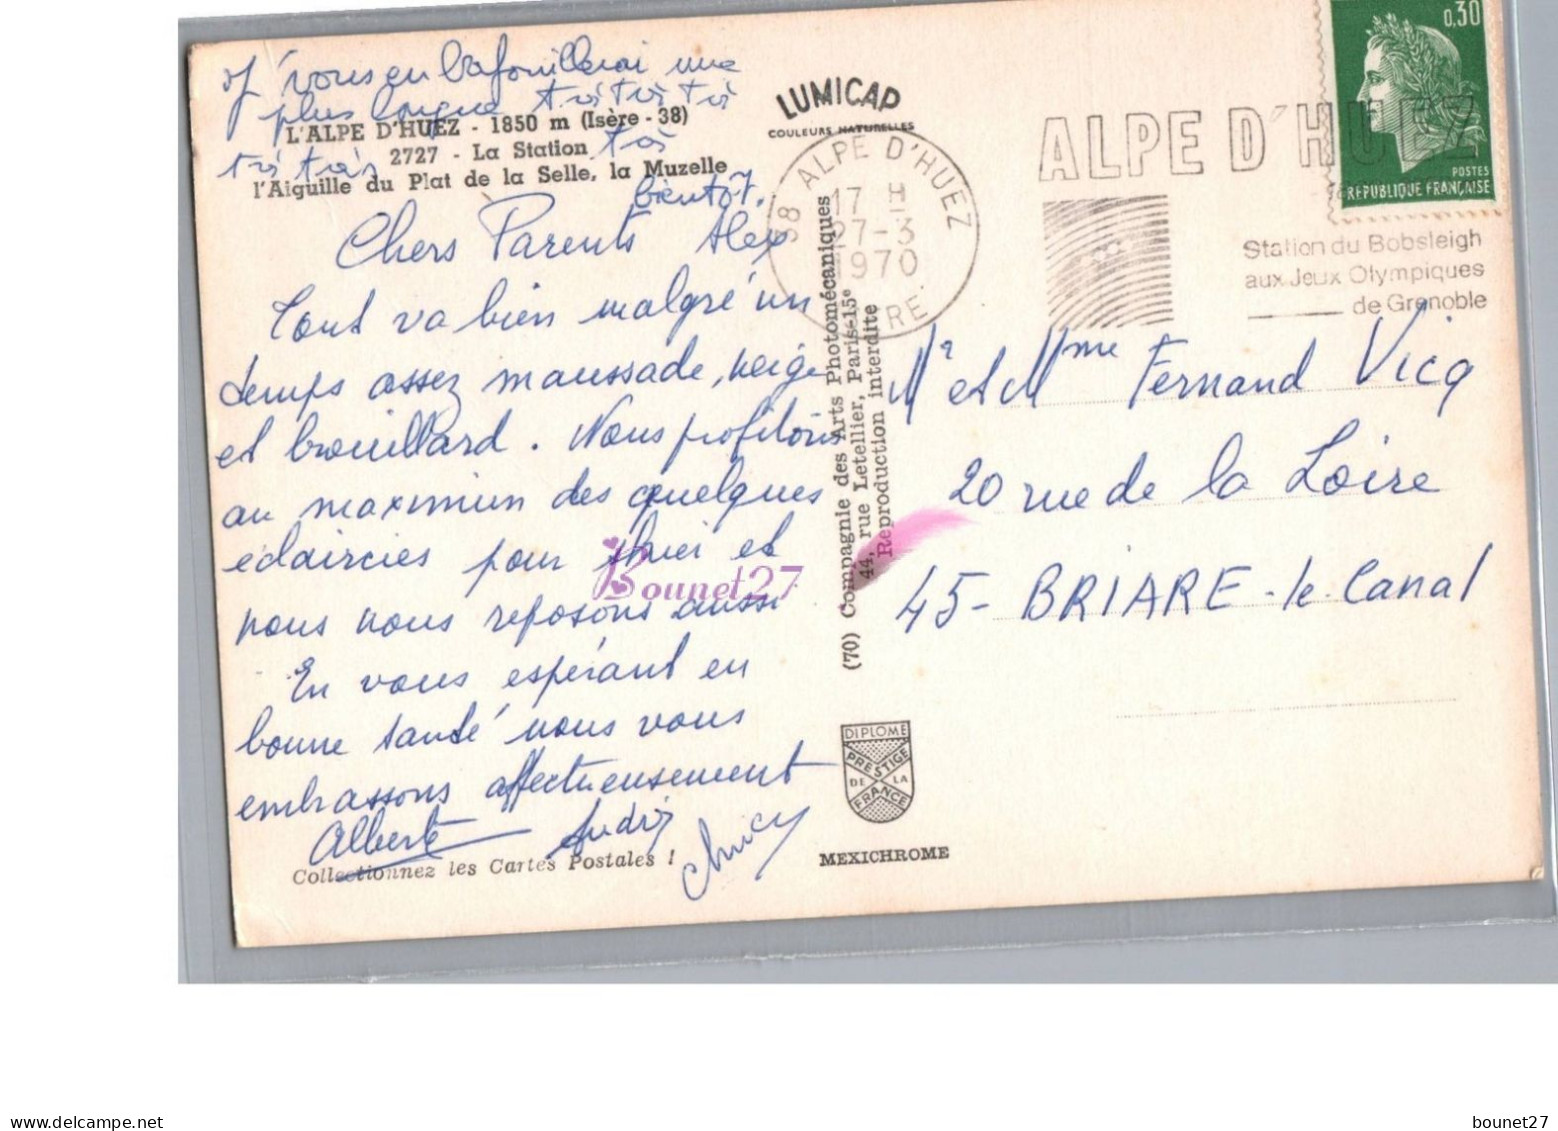 j'vous en bafouillerai une
plus longue très très très
très très très
bientôt.
L'ALPE D'HUEZ - 1850 m (Isère - 38)
2727 - La Station
l'Aiguille du Plat de la Selle, la Muzelle
Chers Parents Alex
Tout va bien malgré un
temps assez maussade, neige
et brouillard. Nous profitons
au maximum des quelques
éclaircies pour skier et
nous nous reposons aussi
En vous espérant en
bonne santé nous vous
embrassons affectueusement
Alberte André
Collectionnez les Cartes Postales !
LUMICAP
COULEURS NATURELLES
38 ALPE D'HUEZ
17 H
27-3
1970
ISERE
ALPE D'HUEZ
Station du Bobsleigh
aux Jeux Olympiques
de Grenoble
0,30
POSTES
REPUBLIQUE FRANÇAISE
(70) Compagnie des Arts Photomécaniques
44, rue Letellier, Paris-15e
Reproduction interdite
Mr et Mme Fernand Vicq
20 rue de la Loire
45- BRIARE-le-Canal
DIPLOME
PRESTIGE
DE LA
FRANCE
MEXICHROME
Bounet27
www.delcampe.net
bounet27